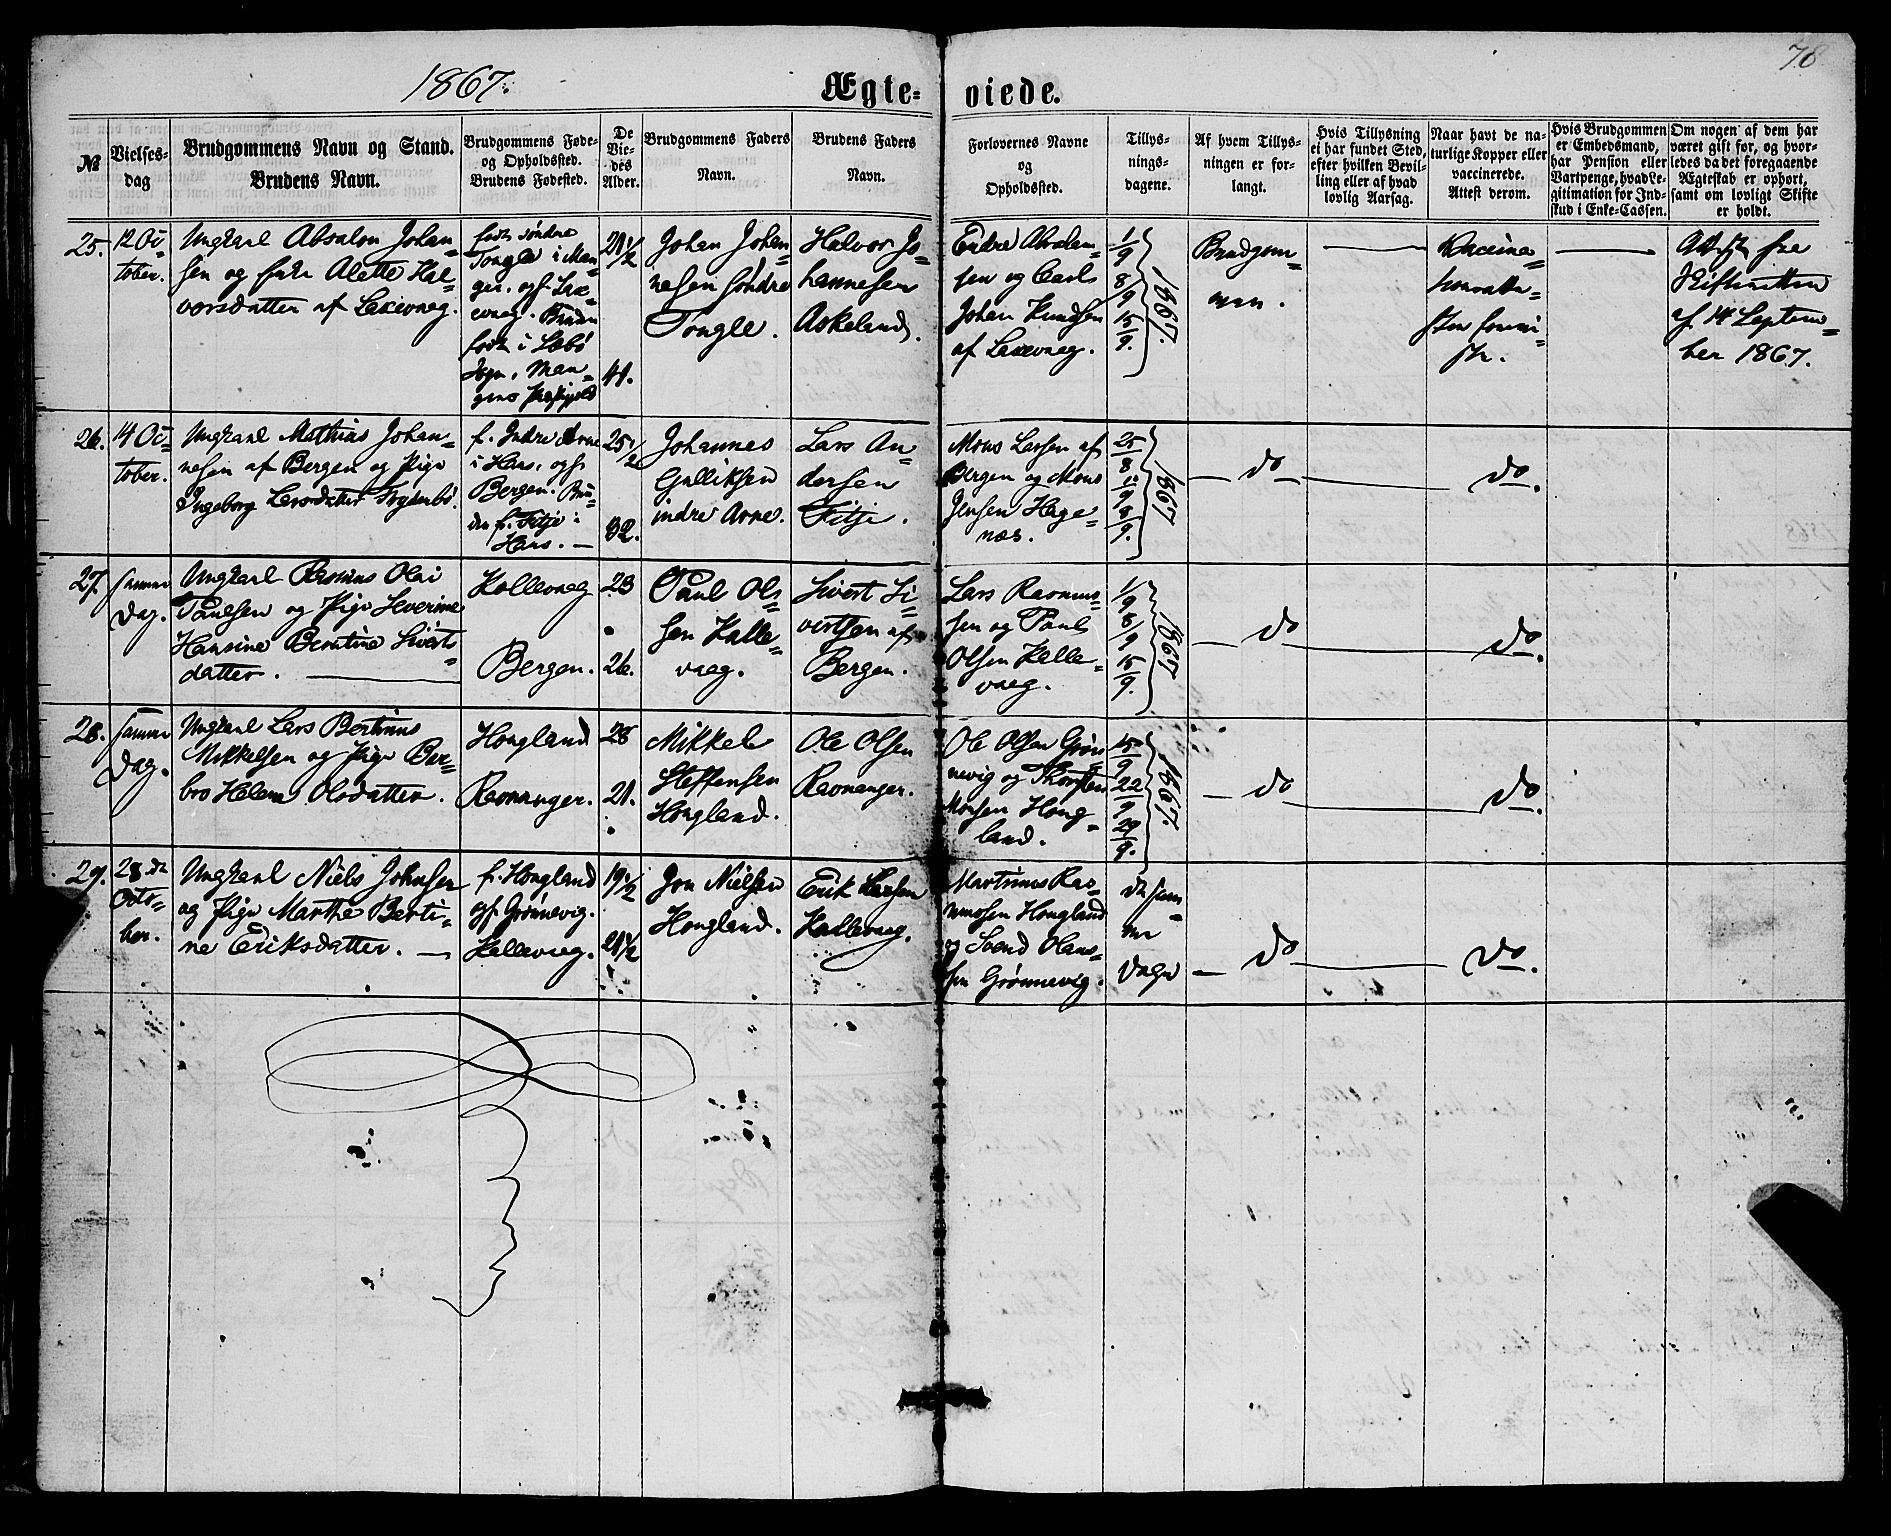 1867.
Ægte-
viede.
78
№
Vielses-
dag
Brudgommens Navn og Stand.
Brudens Navn.
Brudgommens Føde-
og Opholdssted.
Brudens Fødested.
De
Vie-
des
Alder.
Brudgommens Faders
Navn.
Brudens Faders
Navn.
Forlovernes Navne
og
Opholdssted.
Tillys-
nings-
dagene.
Af hvem Tillys-
ningen er for-
langt.
Hvis Tillysning
ei har fundet Sted,
efter hvilken Bevil-
ling eller af hvad
lovlig Aarsag.
Naar havt de na-
turlige Kopper eller
vaccinerede.
Attest derom.
Hvis Brudgommen
er Embedsmand,
har Pension eller
Vartpenge, hvad Le-
gitimation for Ind-
skud i Enke-Cassen.
Om nogen af dem har
været gift før, og hvor-
ledes da det foregaaende
Ægteskab er ophørt,
samt om lovligt Skifte
er holdt.
25.
12 Oc-
tober.
Ungkarl Absalon Johan-
sen og Enke Alette Hal-
vorsdatter af
født søndre
Tongle i Man-
ger. opf.
Bruden
født i Sæbø
Sogn, Man-
gers
21 1/2
41.
Johan Johan-
nesen søndre
Tongle.
Halvor Jo-
hannesen
Askeland.
Endre Absalon-
sen og Carl
Johan Knudsen
af
1/9
8/9
15/9.
1867.
Brudgom-
men.
Vaccina-
tionsatte-
ster
Attest fra
Skifteretten
af 14 Septem-
ber 1867.
26.
14 Oc-
tober.
Ungkarl Mathias Johan-
nesen af Bergen og Pige
Ingeborg Larsdatter
f. Indre Arne
i Hans, opf.
Bergen. Bru-
den f. Fitje i
Hans.
25 1/2
32.
Johannes
Gulliksen
indre Arne.
Lars An-
dersen
Fitje.
Mons Larsen af
Bergen og Mons
Jensen Hage-
næs.
25/8
1/9
8/9.
1867
do
do.
27.
samme
Dag.
Ungkarl Rasmus Olai
Paulsen og Pige Severine
Hansine Berntine Siverts-
datter.
Kollevaag
Bergen.
23
26.
Paul Ol-
sen Kalle-
vaag.
Sivert Si-
vertsen af
Bergen.
Lars Rasmus-
sen og Paul
Olsen Kalle-
vaag.
1/9
8/9
15/9.
1867
do
do.
28.
samme
Dag.
Ungkarl Lars Bertinus
Mikkelsen og Pige Bar-
bro Helene Olsdatter.
Hougland
Ravnanger.
28
21.
Mikkel
Steffensen
Hougland.
Ole Olsen
Ravnanger.
Ole Olsen Grøn-
nevig og Thorsten
Monsen Houg-
land.
15/9
22/9
29/9.
1867.
do
do.
29.
28 de
Octo-
ber.
Ungkarl Niels Johnsen
og Pige Marthe Berti-
ne Eriksdatter.
f. Hougland
opf. Grønnevig.
Kallevaag.
19 1/2
21 1/2
Jon Nielsen
Hougland.
Erik Larsen
Kallevaag.
Martinus Ras-
mussen Hougland
og Svend Hans-
sen Grønnevig.
de sam-
me
Dage
do
do.